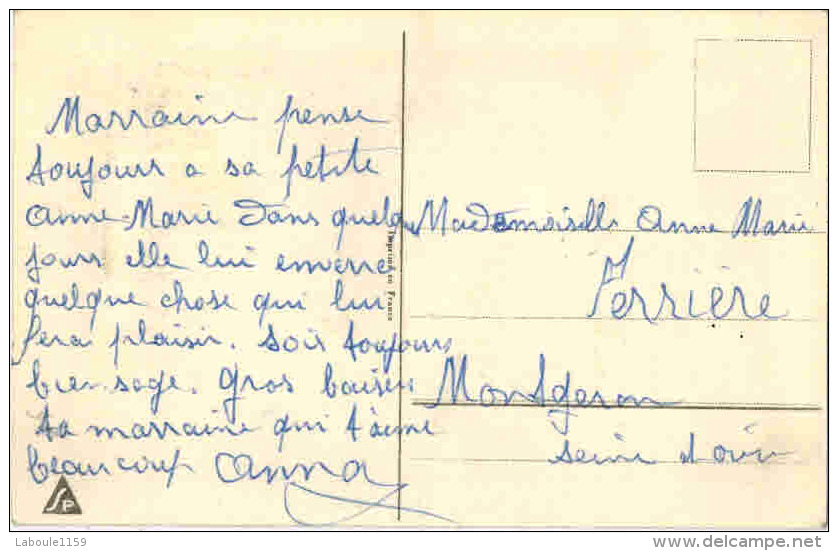 Marraine pense
toujours a sa petite
Anne-Marie Dans quelqu
jours elle lui enverra
quelque chose qui lui
fera plaisir. Sois toujours
bien sage. Gros baisers
ta marraine qui t'aime
beaucoup Anna
Mademoiselle Anne Marie
Ferrière
Montgeron
Seine et oise
Imprimé en France
SP
Laboule1159
www.delcampe.net